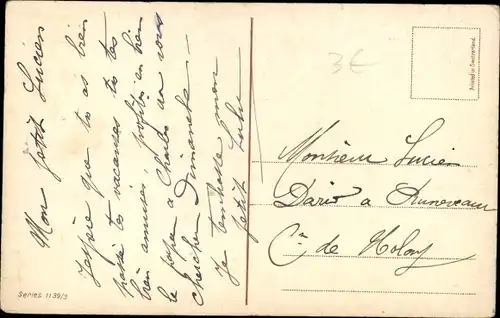 Mon petit Lucien
J'espère que tu as bien
passé tes vacances tu t'es
bien amusés, profites en bien
le papa a Charles ira vous
chercher Dimanche. —
Je t'embrasse mon
petit Lulu
3€
Printed in Switzerland.
Monsieur Lucien
Dario a Auneveau
Cne de Moloy
Series 1139/3